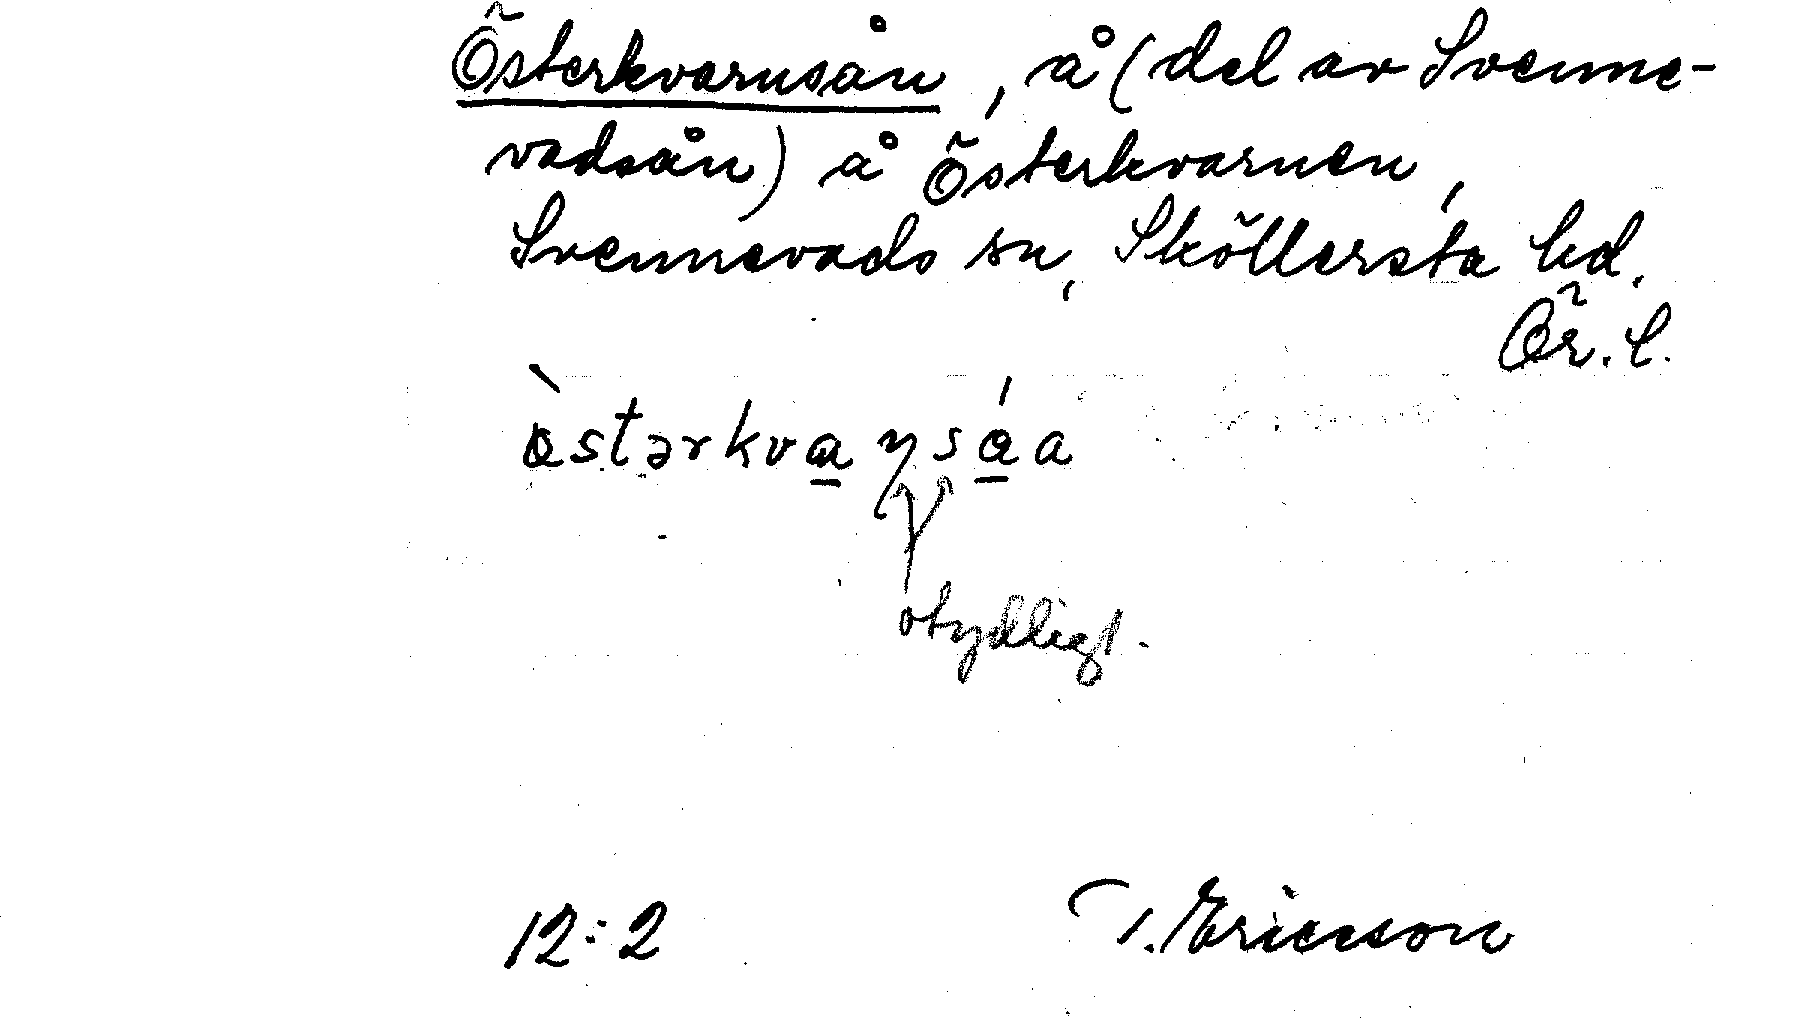 Österkvarnsån, å (del av Svenne-
vadsån) å Österkvarnen,
Svennevads sn, Sköllersta hd.
Ör. l.
otydligt.
12:2 T. Ericsson